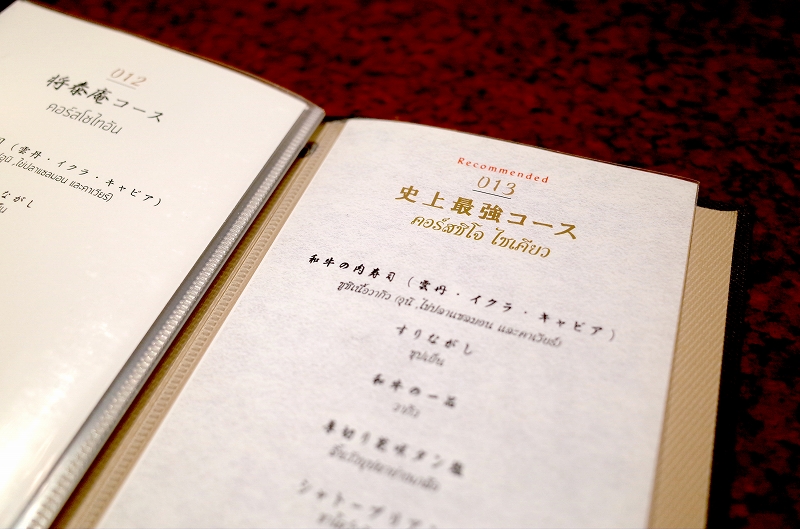 012
将泰庵コース
คอร์สโชไทอัน
(雲丹・イクラ・キャビア)
,ไข่ปลาแซลมอน และคาเวียร์)
ながし
Recommended
013
史上最強コース
คอร์สชิโจ ไซเคียว
和牛の肉寿司(雲丹・イクラ・キャビア)
ซูชิเนื้อวากิว (อูนิ ,ไข่ปลาแซลมอน และคาเวียร์)
すりながし
ซุปเย็น
和牛の一品
วากิว
厚切り黒咲タン塩
シャトーブリアン